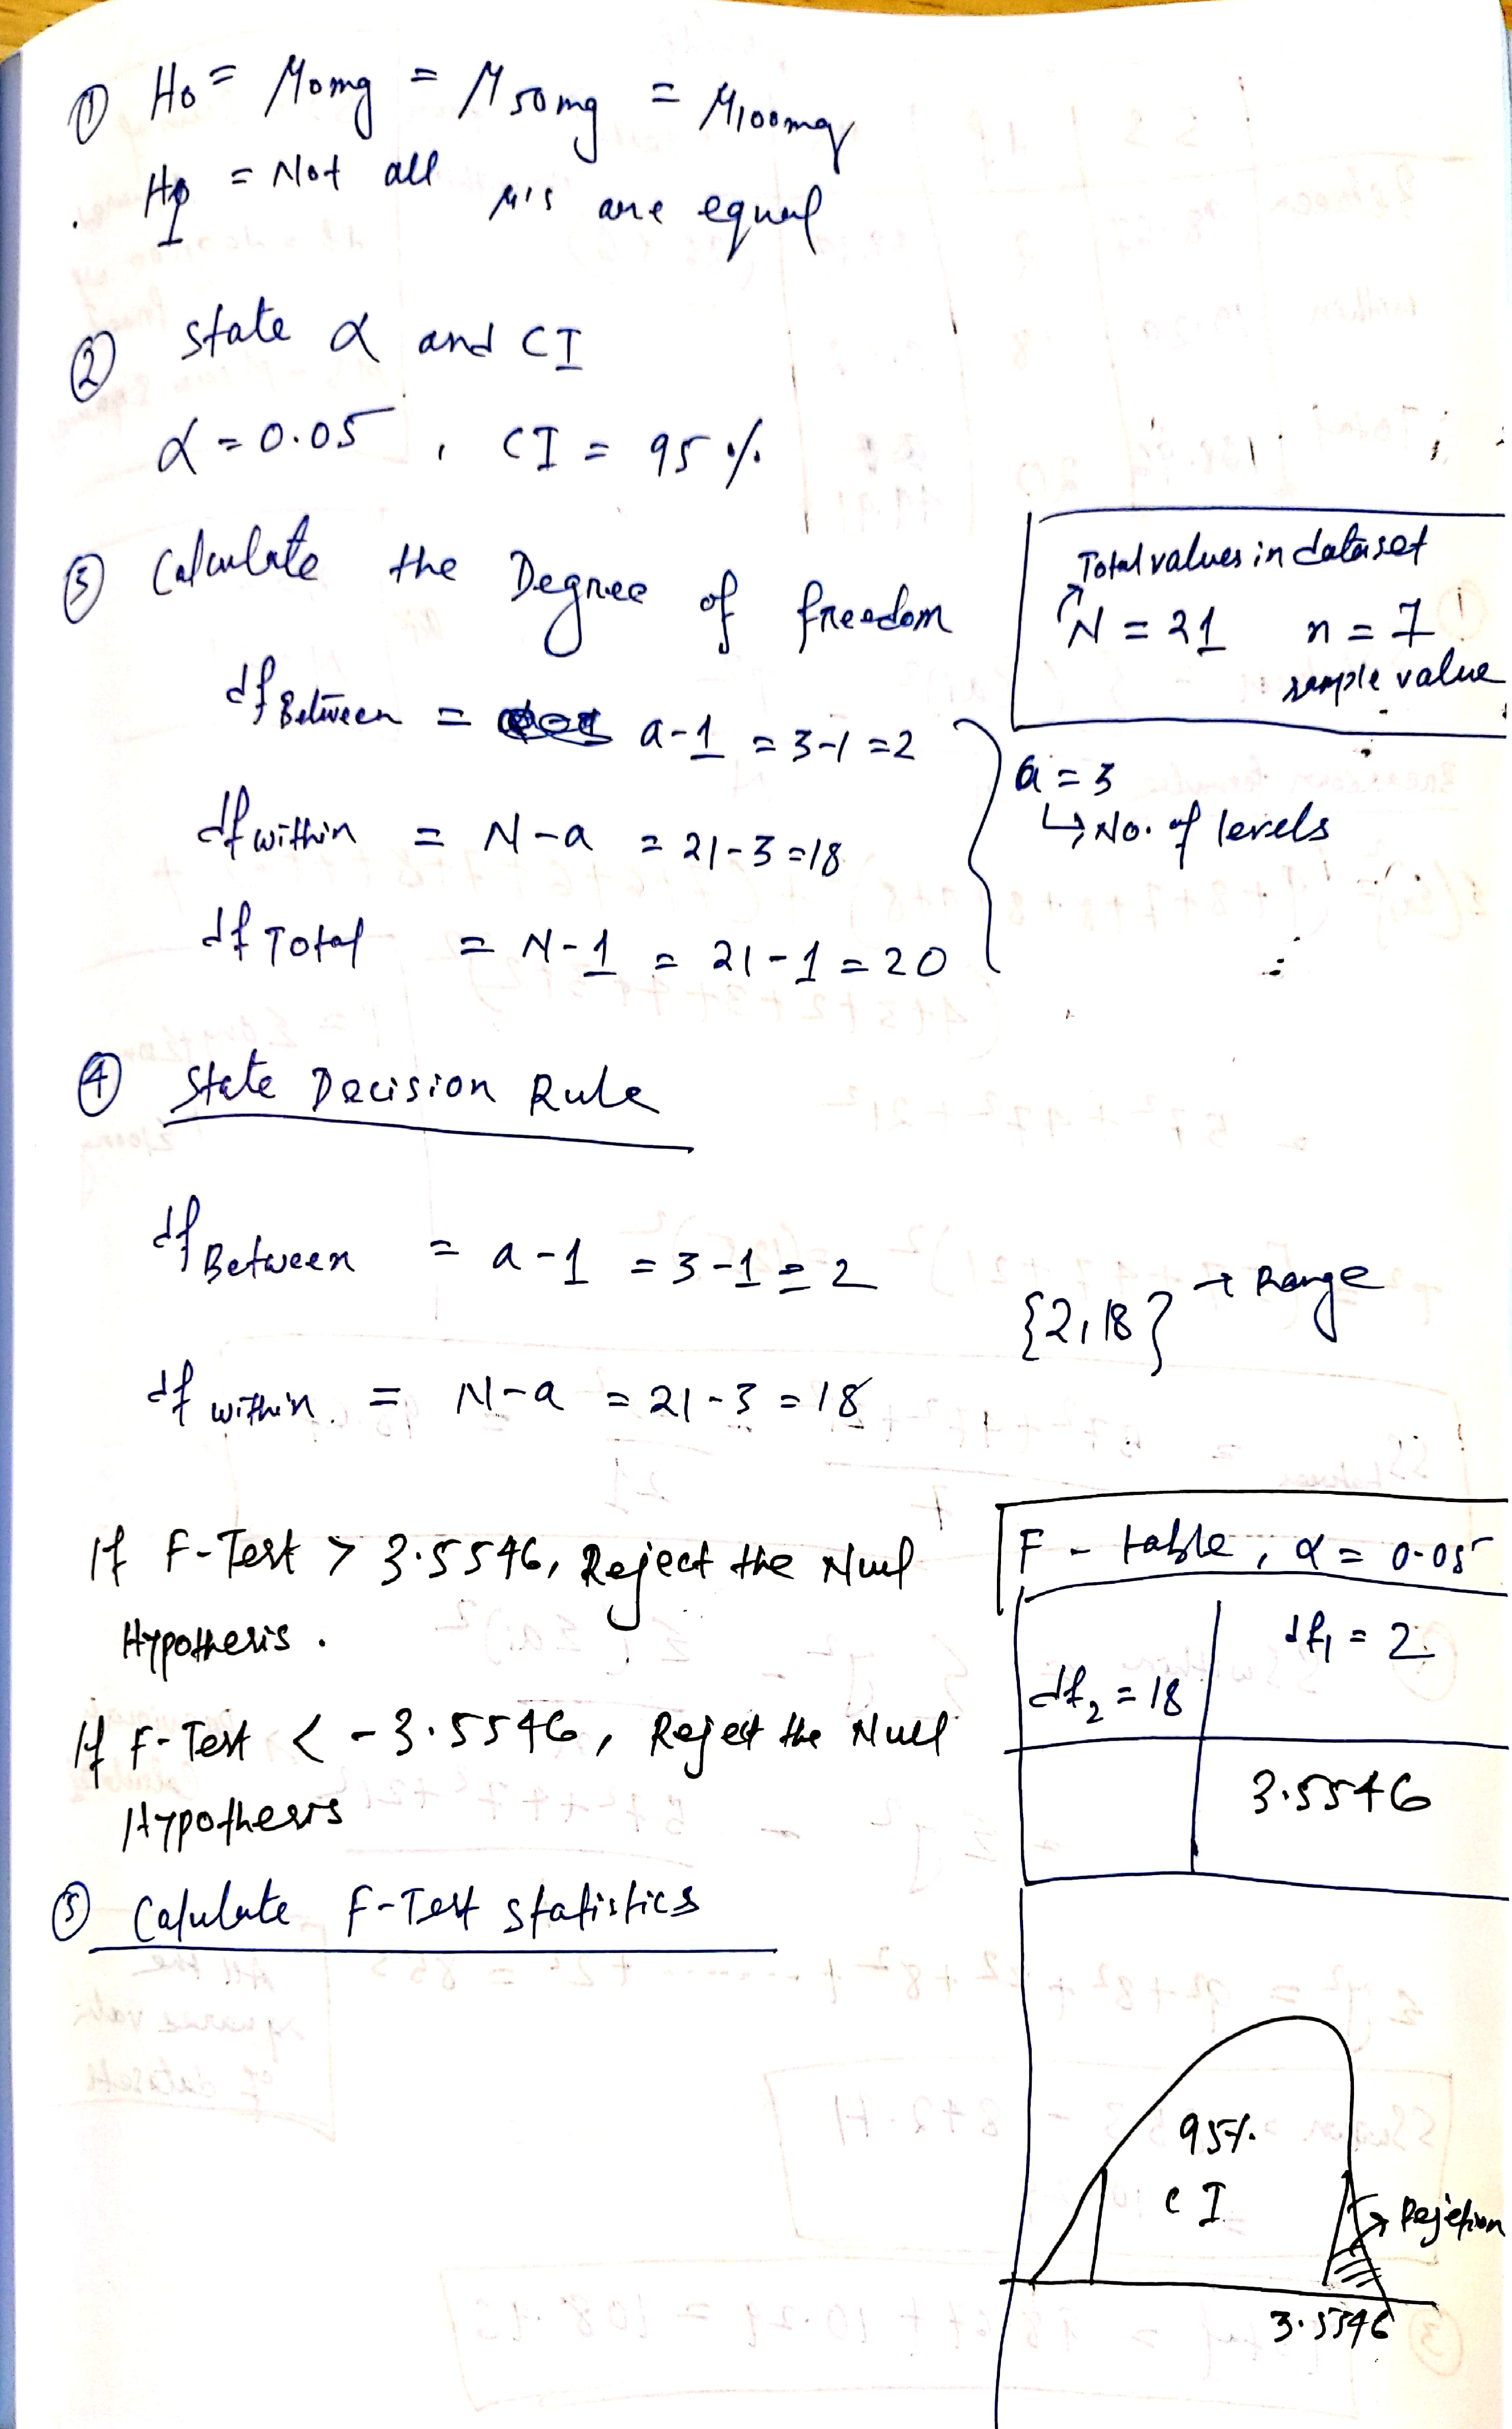 ① H0 = μ0mg = μ50mg = μ100mg
H1 = Not all μ's are equal
② State α and CI
α = 0.05, CI = 95%
③ Calculate the Degree of freedom
Total values in dataset
N = 21 n = 7
sample value
df Between = a-1 = 3-1 = 2
a = 3
↳ No. of levels
df within = N-a = 21-3 = 18
df Total = N-1 = 21-1 = 20
④ State Decision Rule
df Between = a-1 = 3-1 = 2
{2,18} → Range
df within = N-a = 21-3 = 18
If F-Test > 3.5546, Reject the Null
Hypothesis.
If F-Test < -3.5546, Reject the Null
Hypothesis
F - table, α = 0.05
df1 = 2
df2 = 18
3.5546
⑤ Calulate F-Test statistics
95%
CI
Rejetion
3.5546